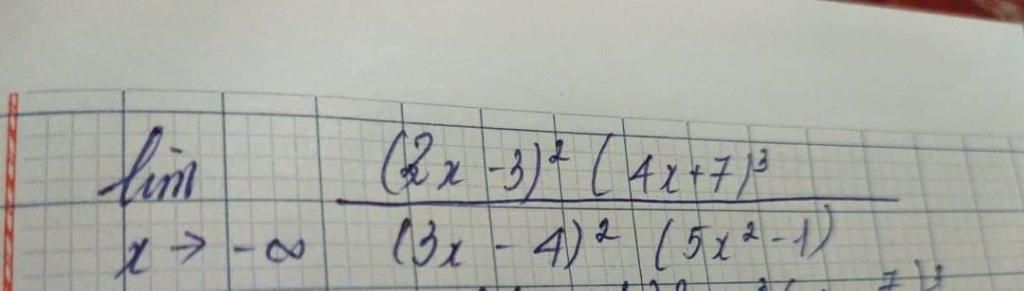 lim (2x - 3)² (4x + 7)³
x → -∞ (3x - 4)² (5x² - 1)